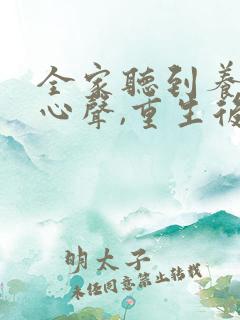 全家聽到養
心聲,重生後
明太子
未经同意禁止转载